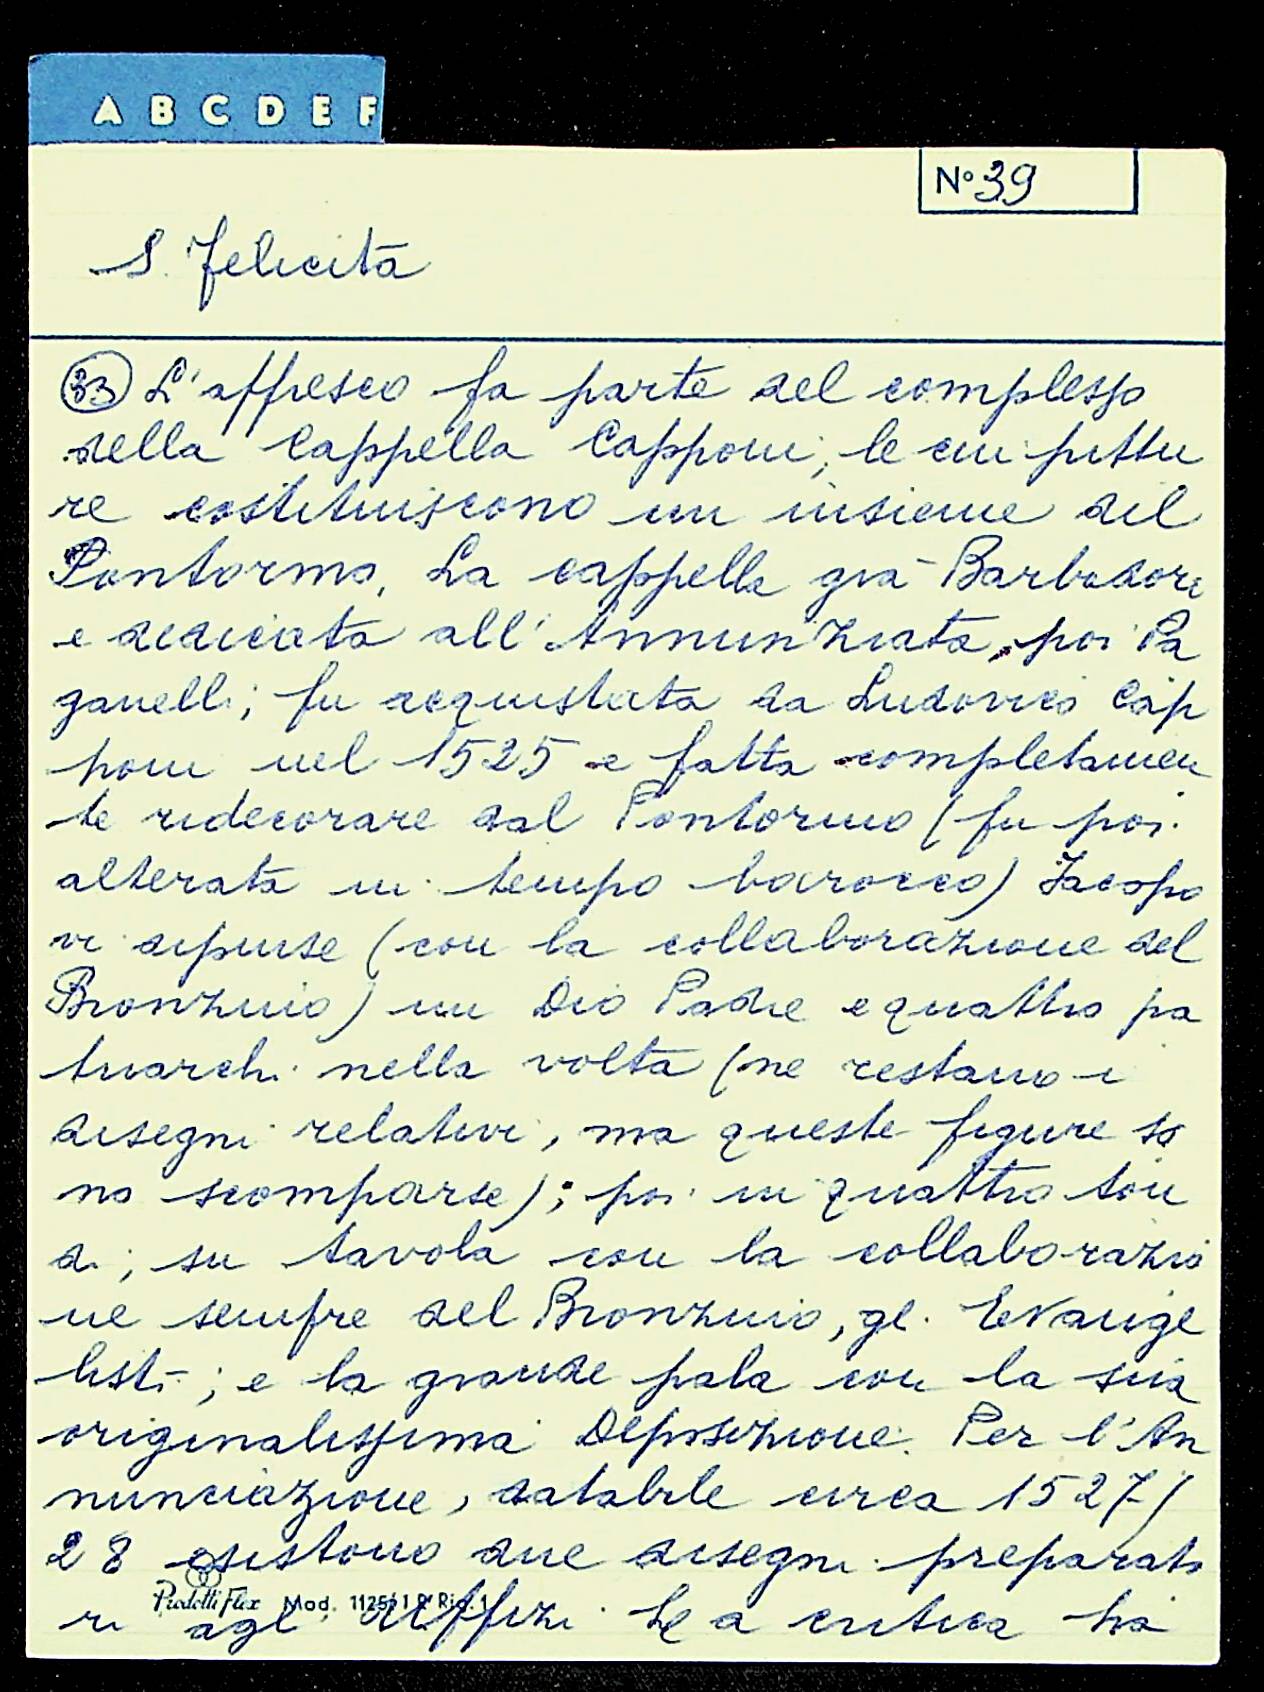 A B C D E F
N° 39
S. Felicità
33 L'affresco fa parte del complesso
della Cappella Capponi, le cui pittu
re costituiscono un insieme del
Pontormo. La cappella già Barbadori
e dedicata all'Annunziata, poi Pa
ganelli; fu acquistata da Ludovico Cap
poni nel 1525 e fatta completamen
te ridecorare dal Pontormo (fu poi
alterata in tempo barocco) Jacopo
vi dipinse (con la collaborazione del
Bronzino) un Dio Padre e quattro pa
triarchi nella volta (ne restano i
disegni relativi, ma queste figure so
no scomparse); poi in quattro ton
di, su tavola con la collaborazio
ne sempre del Bronzino, gli Evange
listi; e la grande pala con la sua
originalissima Deposizione. Per l'An
nunciazione, databile circa 1527/
28 esistono due disegni preparato
ri agli Uffizi. La critica ha
Prodotti Flex Mod. 11252/1 R Rig. 1